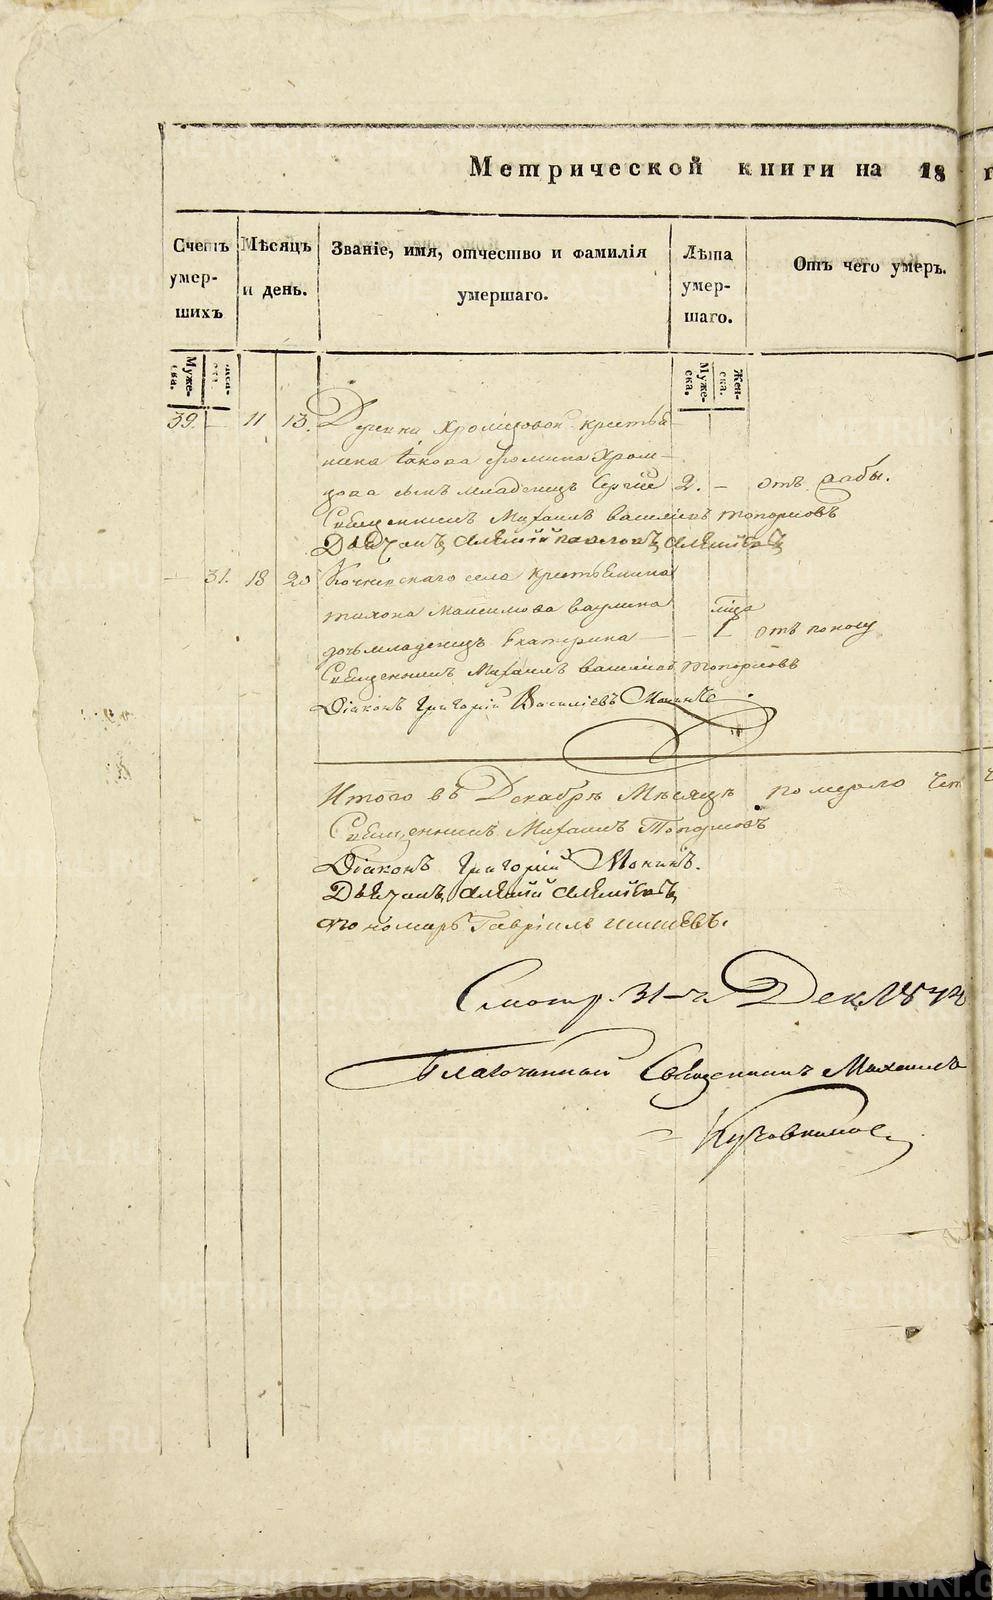 Метрической книги на 18
Счетъ умер- шихъ
Мѣсяцъ и день.
Званіе, имя, отчество и фамилія умершаго.
Лѣта умер- шаго.
Отъ чего умеръ.
Муже- ска.
Жен- ска.
Муже- ска.
Жен- ска.
39. — 11 13. Деревни крестья-
нина Iакова Фомина Хром-
цова сынъ младенецъ Сергiй 2. — отъ
Священникъ Михаилъ Васильевъ Топорковъ
Дьячокъ Алексiй Павловъ
— 31. 18 20 села крестьянина
Тихона Максимова Ваулина мѣся
дочь младенецъ Екатерина — — 1 отъ поносу
Священникъ Михаилъ Васильевъ Топорковъ
Дiаконъ Григорiй Васильевъ
Итого въ Декабрѣ Мѣсяцѣ померло чет
Священникъ Михаилъ Топорковъ
Дiаконъ Григорiй Мокинъ.
Дьячокъ Алексiй
Пономарь Гаврiилъ
Смотр. 31-го Дек. 184
Благочинный Священникъ Михаилъ
METRIKI.GASO-URAL.RU